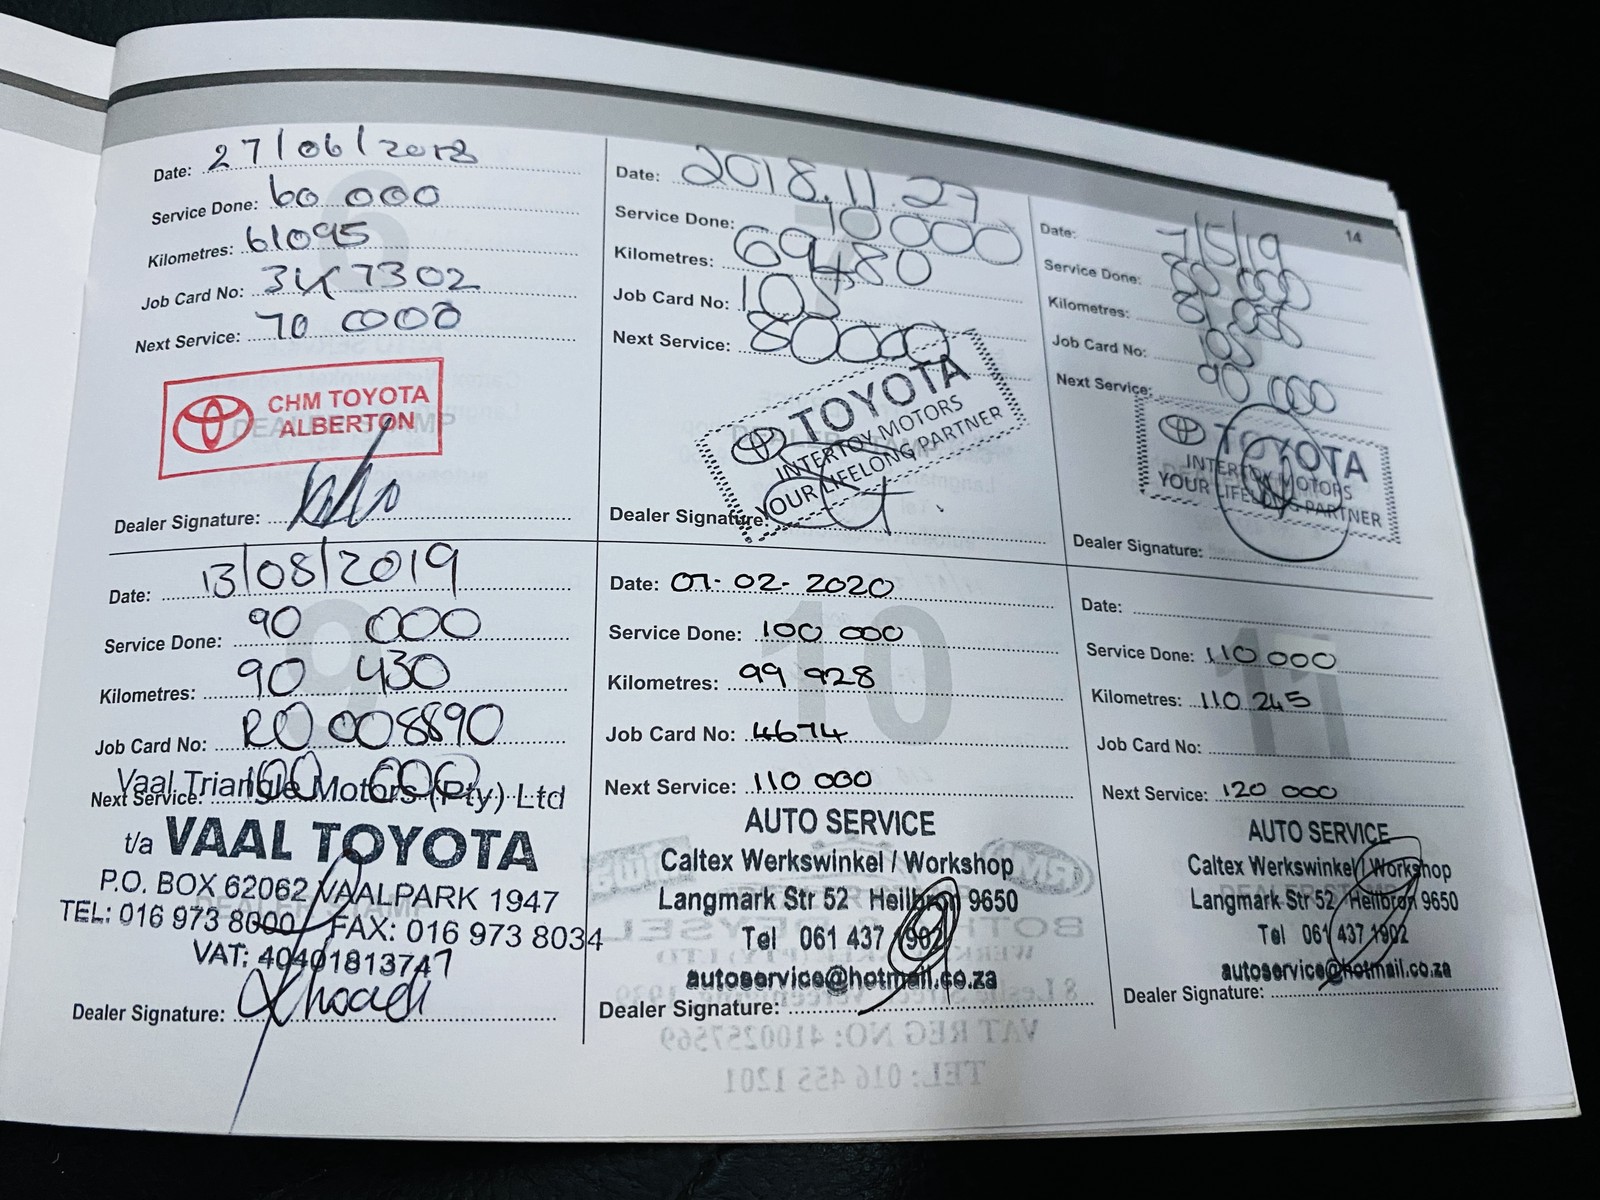 14
Date: 27/06/2018
Service Done: 60 000
Kilometres: 61095
Job Card No:
Next Service: 70 000
CHM TOYOTA
ALBERTON
DEALER STAMP
Dealer Signature:
Date: 2018.11.27
Service Done: 70000
Kilometres: 69480
Job Card No: 105
Next Service: 80000
TOYOTA
INTERTOY MOTORS
YOUR LIFELONG PARTNER
Dealer Signature:
Date: 7/5/19
Service Done: 80 000
Kilometres:
Job Card No: 105
Next Service: 90 000
TOYOTA
INTERTOY MOTORS
YOUR LIFELONG PARTNER
Dealer Signature:
9
Date: 13/08/2019
Service Done: 90 000
Kilometres: 90 430
Job Card No: RO 008890
Next Service: 100 000
Vaal Triangle Motors (Pty) Ltd
t/a VAAL TOYOTA
P.O. BOX 62062 VAALPARK 1947
TEL: 016 973 8000 FAX: 016 973 8034
VAT: 40401813747
Dealer Signature:
10
Date: 07-02-2020
Service Done: 100 000
Kilometres: 99 928
Job Card No: 4674
Next Service: 110 000
AUTO SERVICE
Caltex Werkswinkel / Workshop
Langmark Str 52 Heilbron 9650
Tel 061 437 1902
autoservice@hotmail.co.za
Dealer Signature:
11
Date:
Service Done: 110 000
Kilometres: 110 245
Job Card No:
Next Service: 120 000
AUTO SERVICE
Caltex Werkswinkel / Workshop
Langmark Str 52 Heilbron 9650
Tel 061 437 1902
autoservice@hotmail.co.za
Dealer Signature: